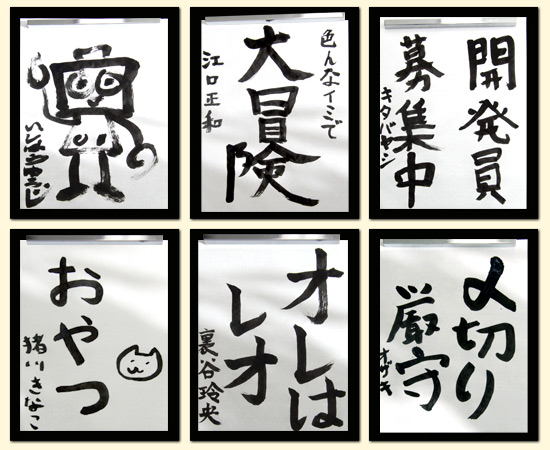 色んなイミで
大冒険
江口正和
開発員
募集中
キタバヤシ
おやつ
猪川きなこ
オレは
レオ
裏谷玲央
〆切り
厳守
オザキ